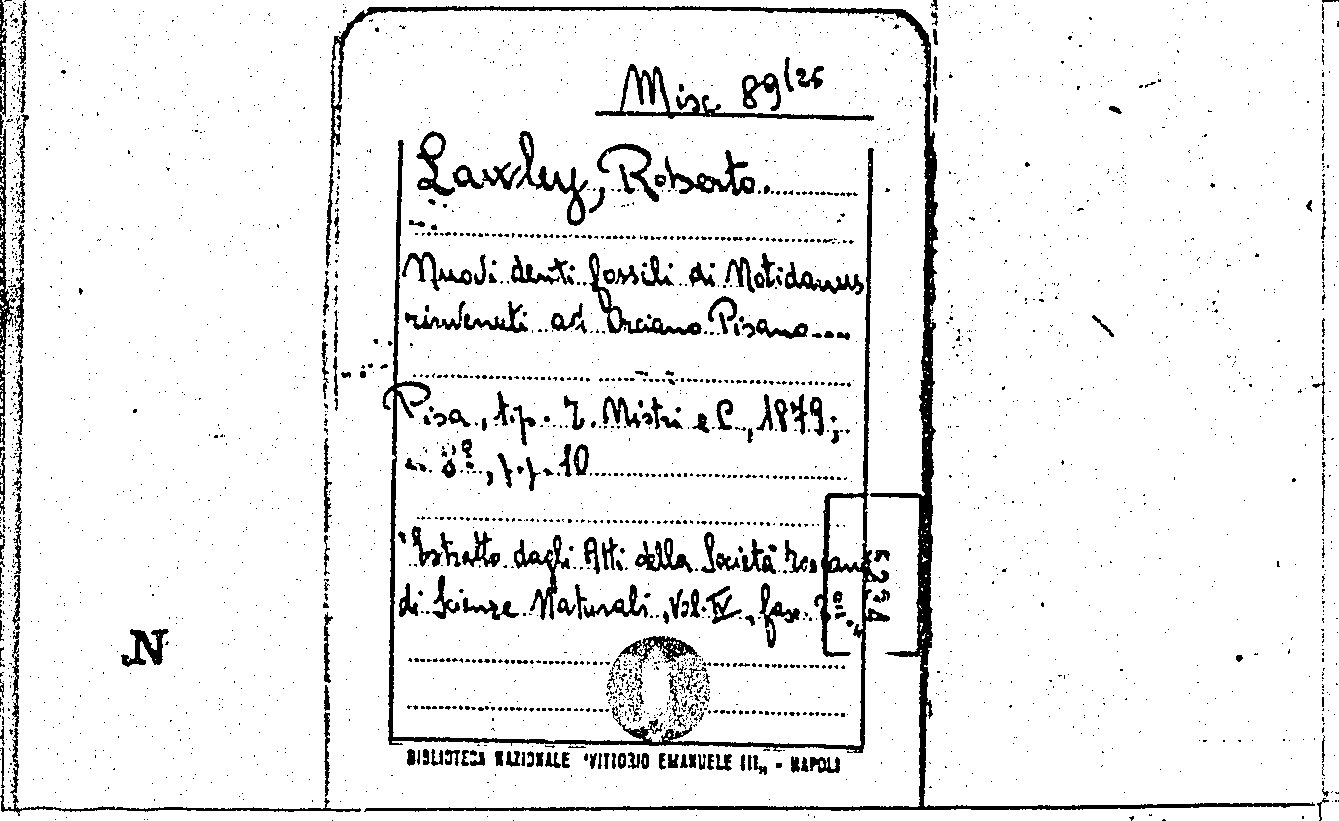 Misc 89/26
Lawley, Roberto.
Nuovi denti fossili di Notidanus
rinvenuti ad Orciano Pisano....
Pisa, tip. T. Nistri e C, 1879;
in 8º, pp. 10
"Estratto dagli Atti della Società Toscana
di Scienze Naturali, Vol. IV, fasc.
N
BIBLIOTECA NAZIONALE "VITTORIO EMANUELE III„ - NAPOLI